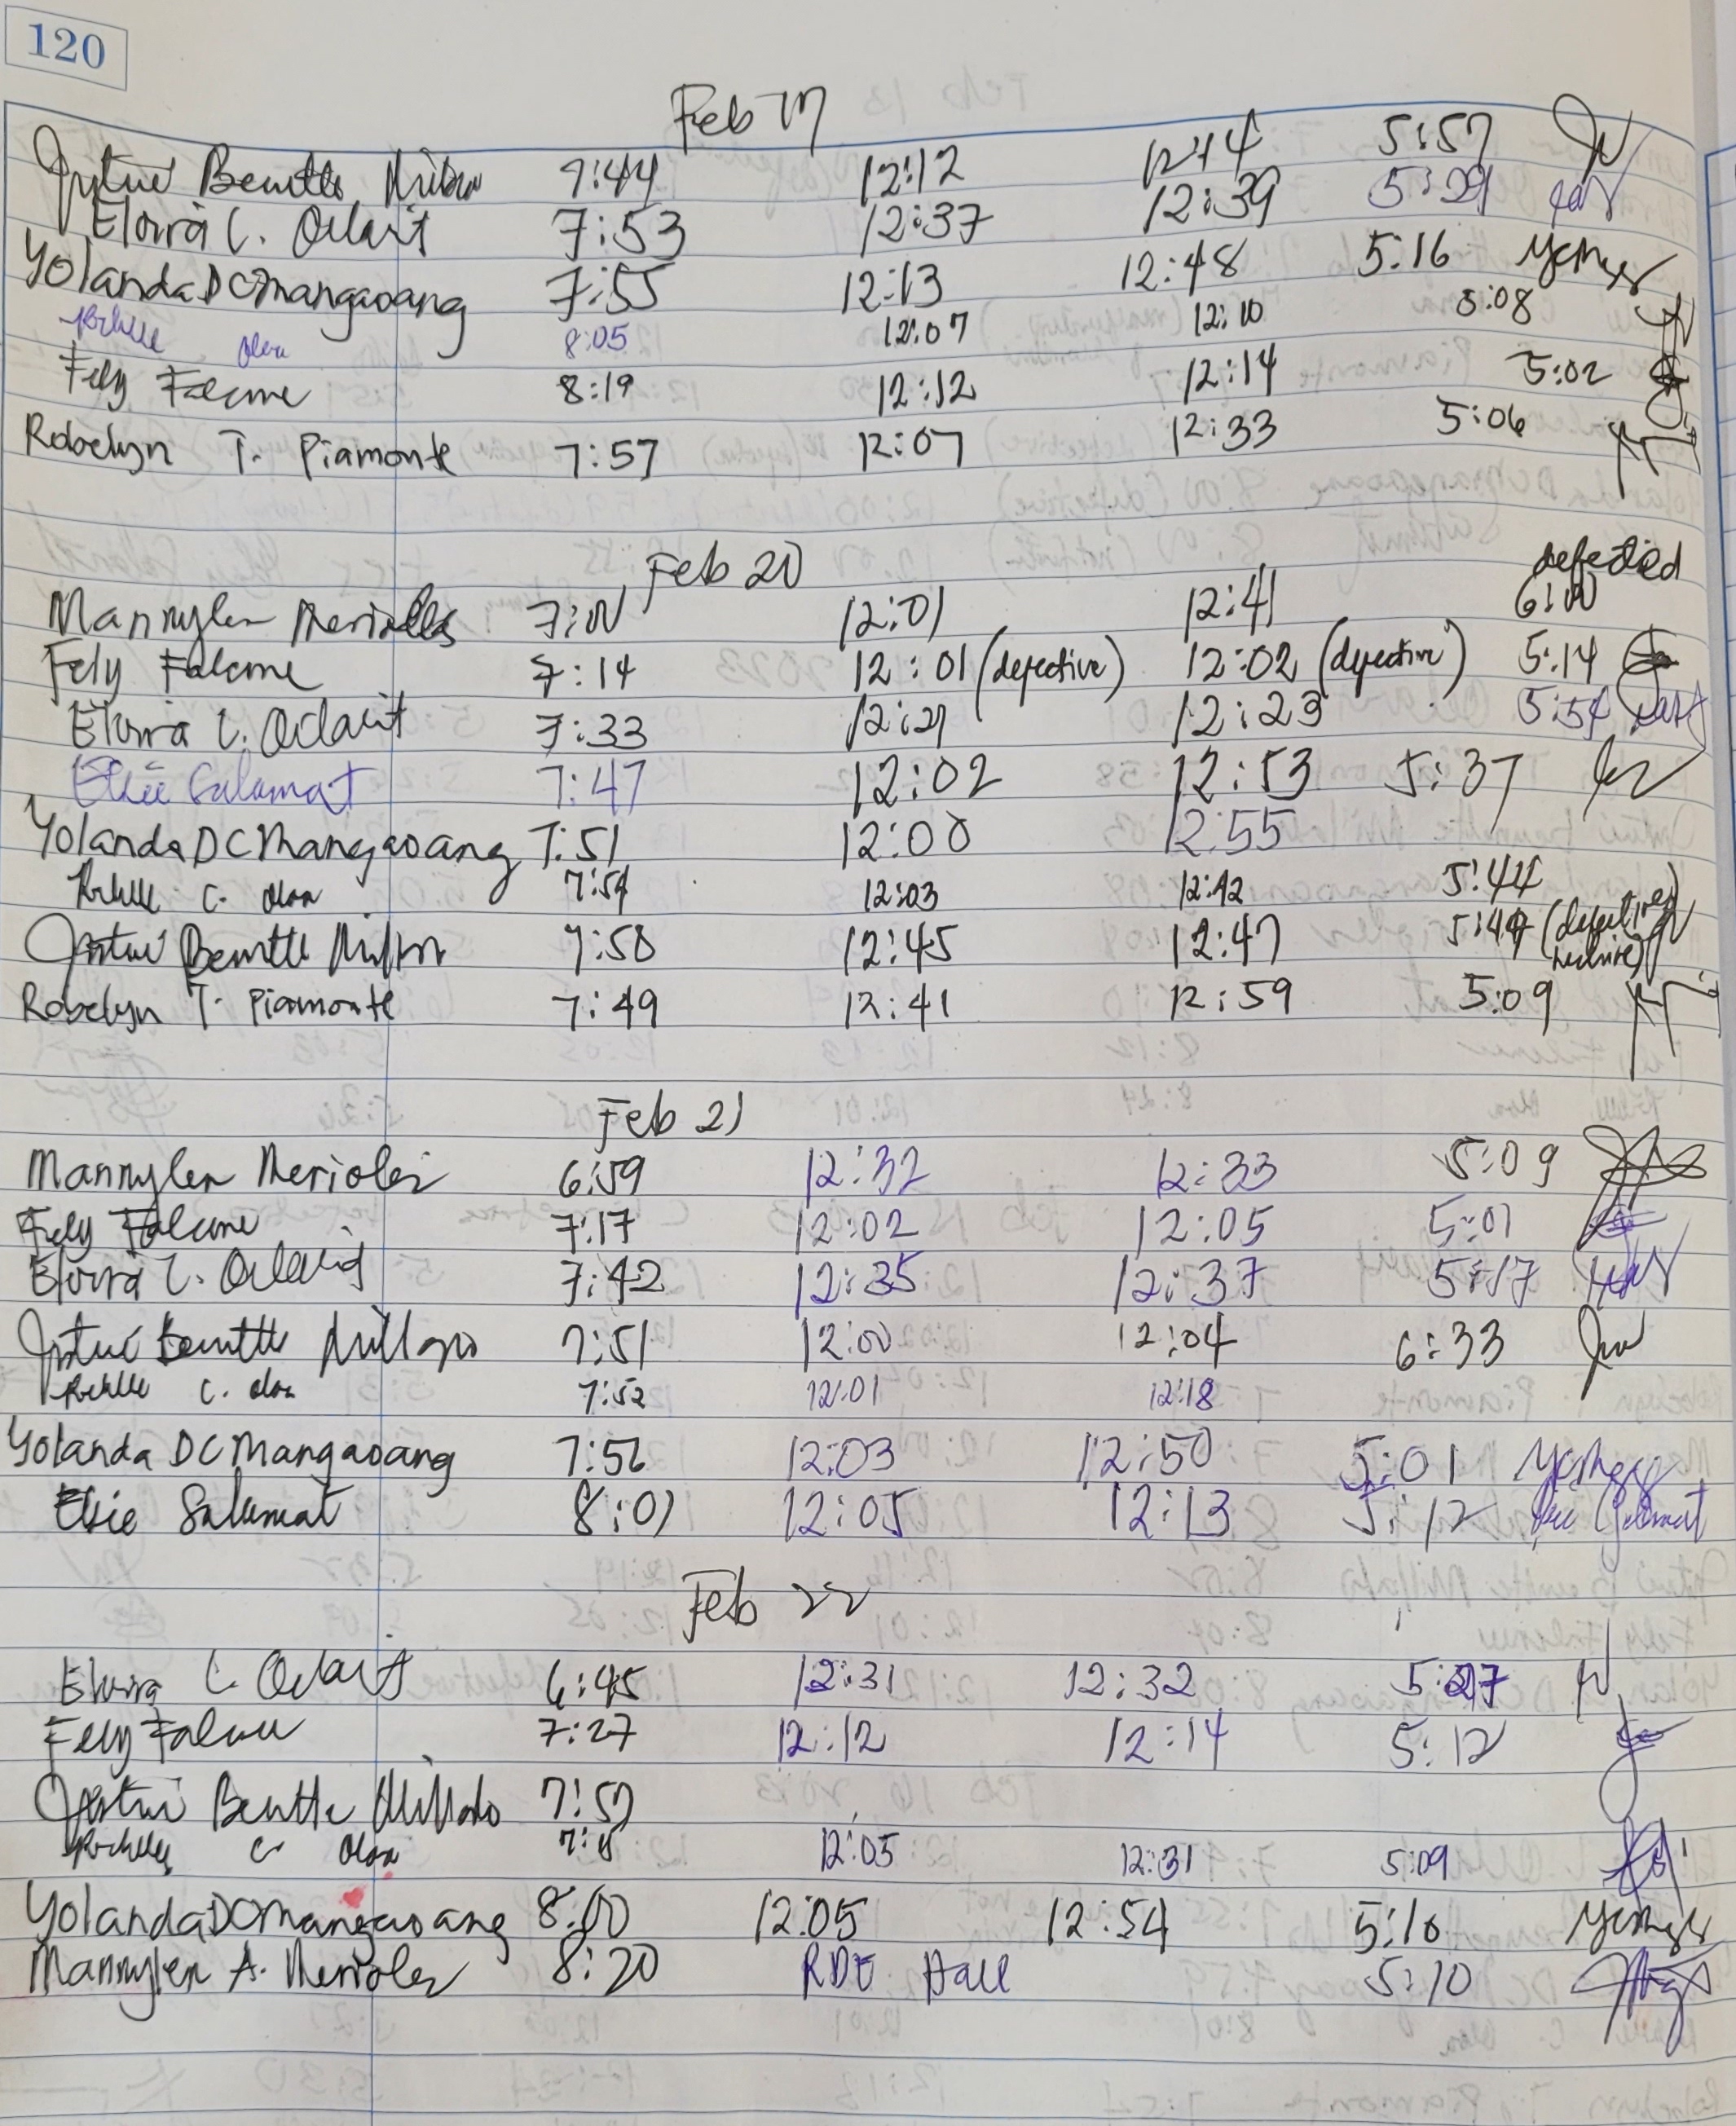 120
Feb 17
Bennette 7:44 12:12 12:14 5:57
Elvira C. Oclarit 7:53 12:37 12:39 5:29
Yolanda DC Mangaoang 7:55 12:13 12:48 5:16
8:05 12:07 12:10 5:08
Fely Falcone 8:19 12:12 12:14 5:02
Robelyn T. Piamonte 7:57 12:07 12:33 5:06
Feb 20 defected
Mannylen Merioles 7:00 12:01 12:41 6:00
Fely Falcone 7:14 12:01 (defective) 12:02 (defective) 5:14
Elvira C. Oclarit 7:33 12:21 12:23 5:54
Elsie Salamat 7:47 12:02 12:53 5:37
Yolanda DC Mangaoang 7:51 12:00 12:55
C. Olan 7:54 12:03 12:42 5:44
Bennette 7:58 12:45 12:47 5:44 (defective
Robelyn T. Piamonte 7:49 12:41 12:59 5:09
Feb 21
Mannylen Merioles 6:59 12:32 12:33 5:09
Fely Falcone 7:17 12:02 12:05 5:01
Elvira C. Oclarit 7:42 12:35 12:37 5:17
Bennette 7:51 12:00 12:04 6:33
C. Olan 7:52 12:01 12:18
Yolanda DC Mangaoang 7:56 12:03 12:50 5:01
Elsie Salamat 8:01 12:05 12:13 5:12
Feb 22
Elvira C. Oclarit 6:45 12:31 12:32 5:27
Fely Falcone 7:27 12:12 12:14 5:12
Bennette 7:57
C. Olan 12:05 12:31 5:09
Yolanda DC Mangaoang 8:00 12:05 12:54 5:10
Mannylen A. Merioles 8:20 RDE Hall 5:10